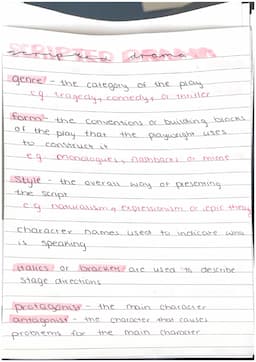 SCRIPTED DRAMA
scripted drama
genre - the category of the play
e.g. tragedy, comedy, or thriller
form - the conventions or building blocks
of the play that the playwright uses
to construct it
e.g. monologues, flashbacks or mime
Style - the overall way of presenting
the script
e.g. naturalism, expressionism or epic theatre
character names used to indicate who
is speaking
italics or brackets are used to describe
stage directions
protagonist - the main character
antagonist - the character that causes
problems for the main character